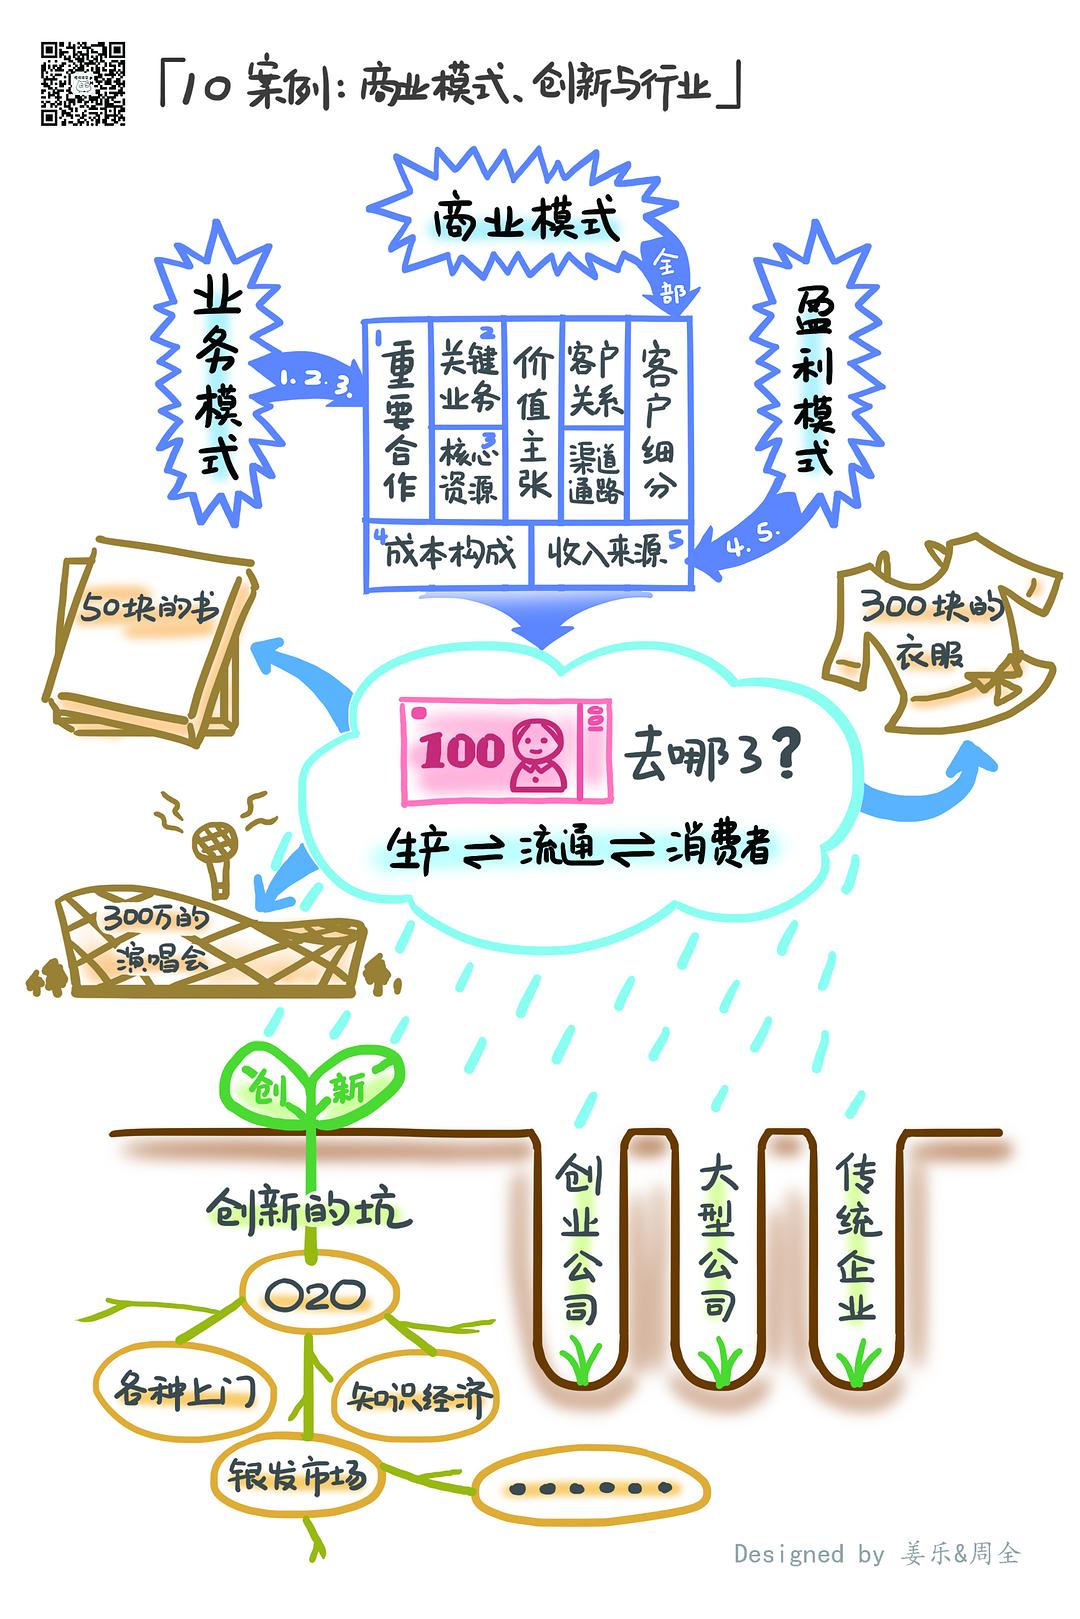 「10 案例：商业模式、创新与行业」
商业模式
全部
业务模式
1. 2. 3.
盈利模式
4. 5.
1 重要合作
2 关键业务
3 核心资源
价值主张
客户关系
渠道通路
客户细分
4 成本构成
收入来源 5
50块的书
300块的
衣服
100
100
去哪了？
生产⇌流通⇌消费者
300万的
演唱会
创新
创新的坑
O2O
各种上门
知识经济
银发市场
······
创业公司
大型公司
传统企业
Designed by 姜乐&周全